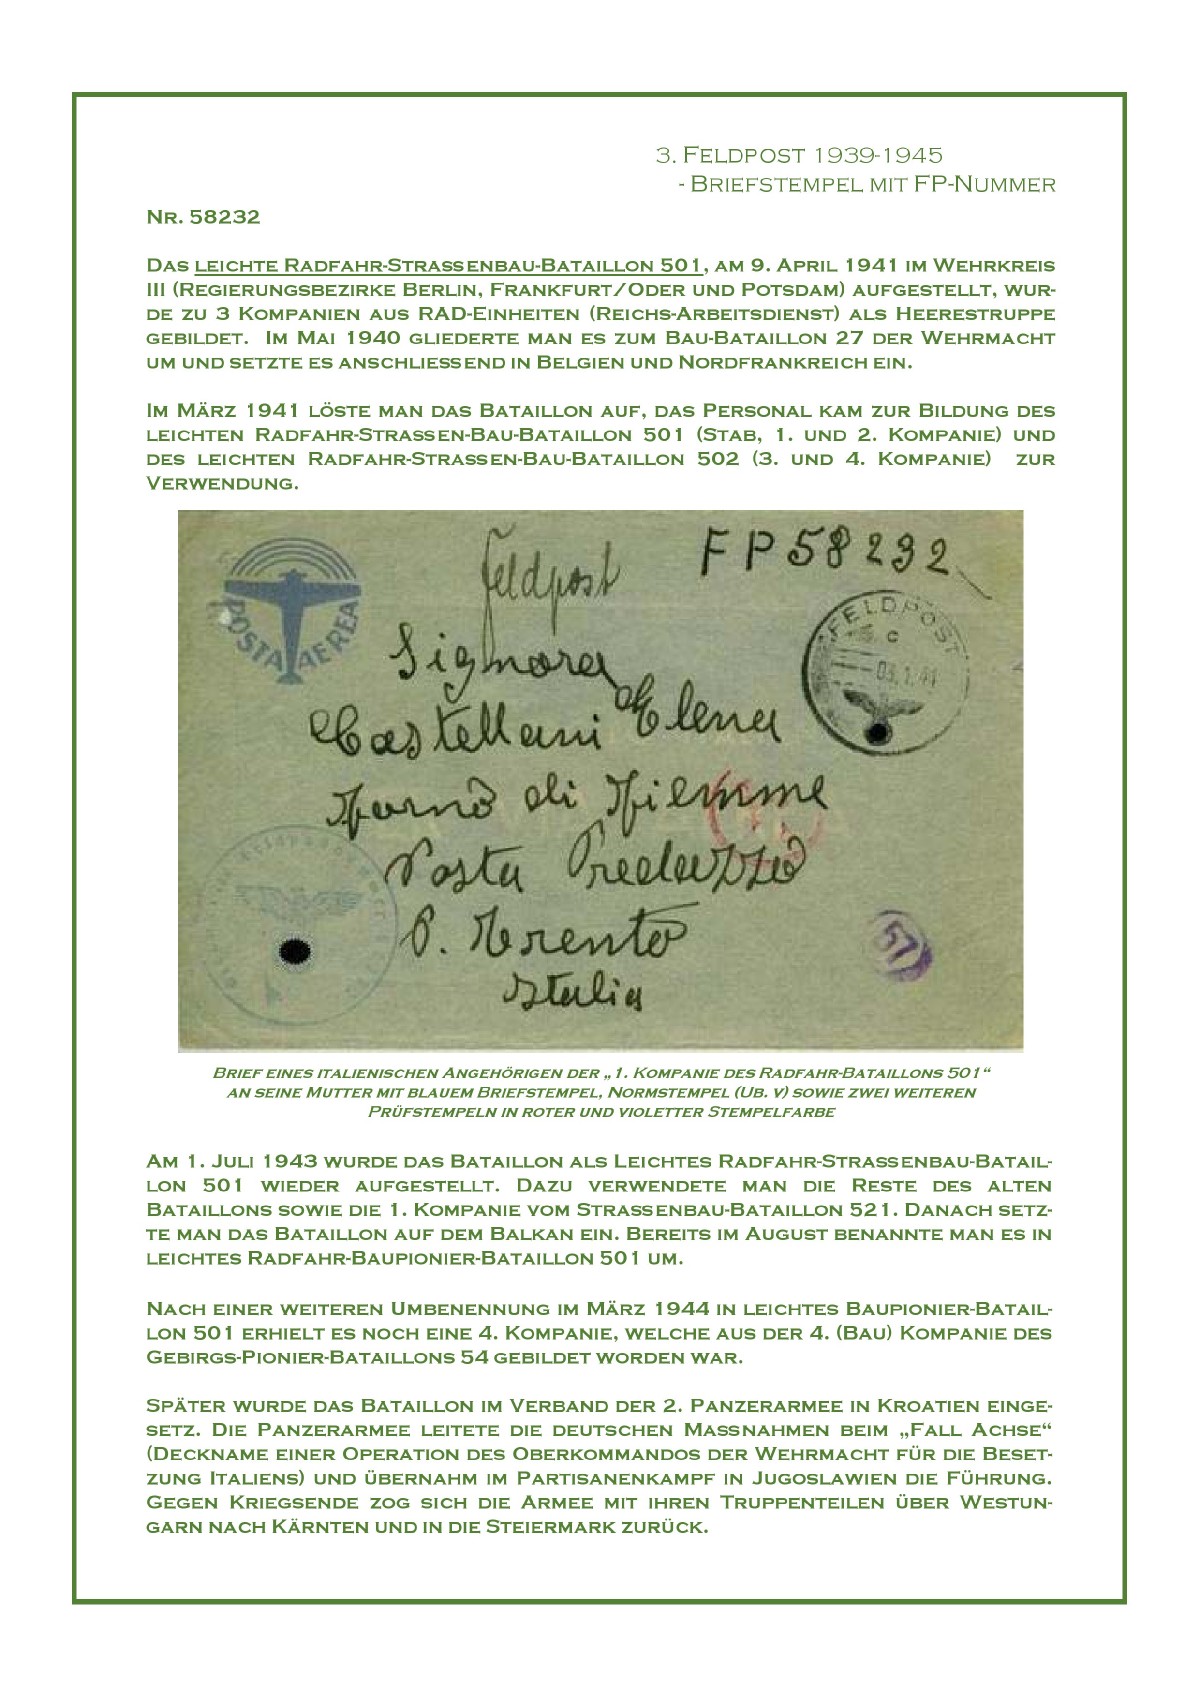 3. Feldpost 1939-1945
- Briefstempel mit FP-Nummer
Nr. 58232
Das leichte Radfahr-Strassenbau-Bataillon 501, am 9. April 1941 im Wehrkreis
III (Regierungsbezirke Berlin, Frankfurt/Oder und Potsdam) aufgestellt, wur-
de zu 3 Kompanien aus RAD-Einheiten (Reichs-Arbeitsdienst) als Heerestruppe
gebildet. Im Mai 1940 gliederte man es zum Bau-Bataillon 27 der Wehrmacht
um und setzte es anschliessend in Belgien und Nordfrankreich ein.
Im März 1941 löste man das Bataillon auf, das Personal kam zur Bildung des
leichten Radfahr-Strassen-Bau-Bataillon 501 (Stab, 1. und 2. Kompanie) und
des leichten Radfahr-Strassen-Bau-Bataillon 502 (3. und 4. Kompanie) zur
Verwendung.
Feldpost
FP58232
POSTA AEREA
FELDPOST
c
03.1.41
Signora
Castellani Elena
Forno di Fiemme
Posta Predazzo
P. Trento
Italia
57
Brief eines italienischen Angehörigen der „1. Kompanie des Radfahr-Bataillons 501“
an seine Mutter mit blauem Briefstempel, Normstempel (Ub. v) sowie zwei weiteren
Prüfstempeln in roter und violetter Stempelfarbe
Am 1. Juli 1943 wurde das Bataillon als Leichtes Radfahr-Strassenbau-Batail-
lon 501 wieder aufgestellt. Dazu verwendete man die Reste des alten
Bataillons sowie die 1. Kompanie vom Strassenbau-Bataillon 521. Danach setz-
te man das Bataillon auf dem Balkan ein. Bereits im August benannte man es in
leichtes Radfahr-Baupionier-Bataillon 501 um.
Nach einer weiteren Umbenennung im März 1944 in leichtes Baupionier-Batail-
lon 501 erhielt es noch eine 4. Kompanie, welche aus der 4. (Bau) Kompanie des
Gebirgs-Pionier-Bataillons 54 gebildet worden war.
Später wurde das Bataillon im Verband der 2. Panzerarmee in Kroatien einge-
setz. Die Panzerarmee leitete die deutschen Massnahmen beim „Fall Achse“
(Deckname einer Operation des Oberkommandos der Wehrmacht für die Beset-
zung Italiens) und übernahm im Partisanenkampf in Jugoslawien die Führung.
Gegen Kriegsende zog sich die Armee mit ihren Truppenteilen über Westun-
garn nach Kärnten und in die Steiermark zurück.